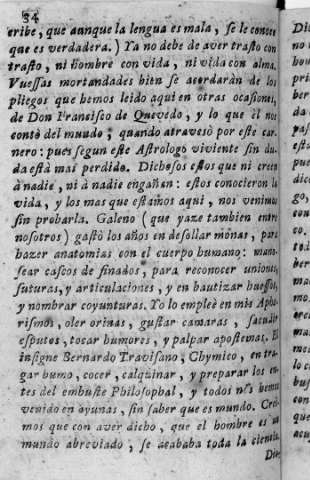 34
cribe, que aunque la lengua es mala, se le conoce
que es verdadera.) Ya no debe de aver trasto con
trasto, ni hombre con vida, ni vida con alma.
Vuessas mortandades bien se acordaràn de los
pliegos que hemos leido aqui en otras ocasiones,
de Don Francisco de Quevedo, y lo que èl nos
contò del mundo, quando atravesò por este car-
nero: pues segun este Astrologo viviente sin du-
da està mas perdido. Dichosos estos que ni creen
à nadie, ni à nadie engañan: estos conocieron la
vida, y los mas que estamos aqui, nos venimos
sin probarla. Galeno (que yaze tambien entre
nosotros) gastò los años en desollar monas, para
hazer anatomias con el cuerpo humano: mano-
sear cascos de finados, para reconocer uniones,
suturas, y articulaciones, y en bautizar huessos,
y nombrar coyunturas. Yo lo empleè en mis Apho-
rismos, oler orinas, gustar camaras, sacudir
esputos, tocar humores, y palpar apostemas. El
insigne Bernardo Travisano, Chymico, en tra-
gar humo, cocer, calçinar, y preparar los en-
tes del embuste Philosophal, y todos nos hemos
venido en ayunas, sin saber que es mundo. Crei-
mos que con aver dicho, que el hombre es un
mundo abreviado, se acababa toda la ciencia.